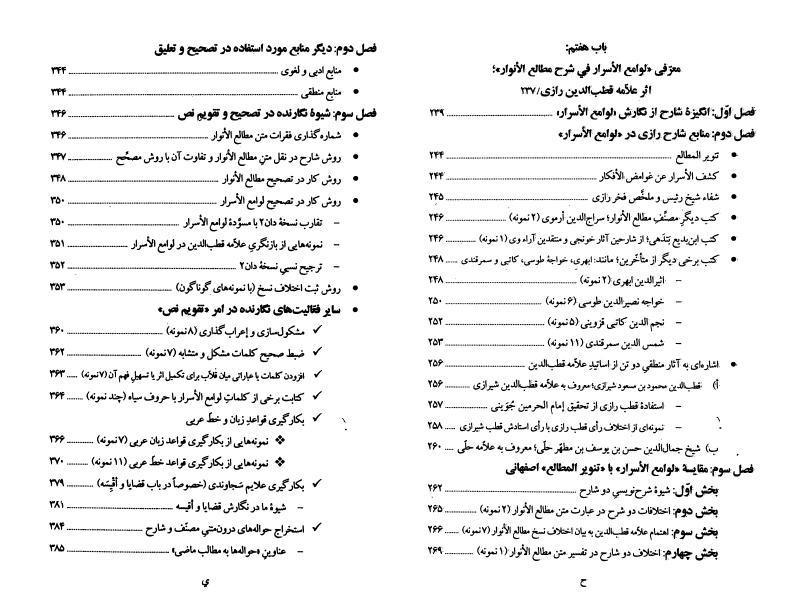 باب هفتم:
معرّفی «لوامع الأسرار في شرح مطالع الأنوار»؛
اثر علّامه قطب‌الدین رازی/۲۳۷
فصل اوّل: انگیزهٔ شارح از نگارش «لوامع الأسرار» ۲۳۹
فصل دوم: منابع شارح رازی در «لوامع الأسرار»
• تنویر المطالع ۲۴۴
• کشف الأسرار عن غوامض الأفکار ۲۴۴
• شفاء شیخ رئیس و ملخّص فخر رازی ۲۴۵
• کتب دیگرِ مصنِّف مطالع الأنوار؛ سراج‌الدین اُرموی (۲ نمونه) ۲۴۶
• کتب ابن‌بدیع بَندَهی؛ از شارحین آثار خونجی و منتقدین آراء وی (۱ نمونه) ۲۴۶
• کتب برخی دیگر از متأخّرین؛ مانند: ابهری، خواجهٔ طوسی، کاتبی و سمرقندی ۲۴۸
– اثیرالدین ابهری (۲ نمونه) ۲۴۸
– خواجه نصیرالدین طوسی (۶ نمونه) ۲۵۰
– نجم الدین کاتبی قزوینی (۵ نمونه) ۲۵۲
– شمس الدین سمرقندی (۱۱ نمونه) ۲۵۳
• اشاره‌ای به آثار منطقیِ دو تن از اساتید علّامه قطب‌الدین ۲۵۶
أ) قطب‌الدین محمود بن مسعود شیرازی؛ معروف به علّامه قطب‌الدین شیرازی ۲۵۶
– استفادهٔ قطب رازی از تحقیق إمام الحرمین جُوَینی ۲۵۷
– نمونه‌ای از اختلاف رأی قطب رازی با رأی استادش قطب شیرازی ۲۵۸
ب) شیخ جمال‌الدین حسن بن یوسف بن مطهّر حلّی؛ معروف به علّامه حلّی ۲۶۰
فصل سوم: مقایسهٔ «لوامع الأسرار» با «تنویر المطالع» اصفهانی
بخش اوّل: شیوهٔ شرح‌نویسی دو شارح ۲۶۲
بخش دوم: اختلافات دو شرح در عبارت متن مطالع الأنوار (۲ نمونه) ۲۶۵
بخش سوم: اهتمام علّامه قطب‌الدین به بیان اختلاف نسخ مطالع الأنوار (۷ نمونه) ۲۶۶
بخش چهارم: اختلاف دو شارح در تفسیر متن مطالع الأنوار (۱ نمونه) ۲۶۹
ح
فصل دوم: دیگر منابع مورد استفاده در تصحیح و تعلیق
• منابع ادبی و لغوی ۳۴۴
• منابع منطقی ۳۴۴
فصل سوم: شیوهٔ نگارنده در تصحیح و تقویم نص ۳۴۶
• شماره‌گذاری فقرات متن مطالع الأنوار ۳۴۶
• روش شارح در نقل متنِ مطالع الأنوار و تفاوت آن با روش مصحّح ۳۴۷
• روش کار در تصحیح مطالع الأنوار ۳۴۸
• روش کار در تصحیح لوامع الأسرار ۳۵۰
– تقارب نسخهٔ دان۲ با مسوّدهٔ لوامع الأسرار ۳۵۰
– نمونه‌هایی از بازنگریِ علّامه قطب‌الدین در لوامع الأسرار ۳۵۱
– ترجیح نسبیِ نسخهٔ دان۲ ۳۵۲
• روش ثبت اختلاف نسخ (با نمونه‌های گوناگون) ۳۵۳
• سایر فعالیت‌های نگارنده در امر «تقویم نص»
✓ مشکول‌سازی و إعراب‌گذاری (۸ نمونه) ۳۶۰
✓ ضبط صحیح کلمات مشکل و متشابه (۷ نمونه) ۳۶۲
✓ افزودن کلمات یا عباراتی میان قلّاب برای تکمیل اثر یا تسهیل فهم آن (۷ نمونه) ۳۶۳
✓ کتابت برخی از کلماتِ لوامع الأسرار با حروف سیاه (چند نمونه) ۳۶۴
✓ بکارگیری قواعد زبان و خط عربی
❖ نمونه‌هایی از بکارگیری قواعد زبان عربی (۷ نمونه) ۳۶۶
❖ نمونه‌هایی از بکارگیری قواعد خطّ عربی (۱۱ نمونه) ۳۷۰
✓ بکارگیری علایم سَجاوندی (خصوصاً در باب قضایا و أقْیِسَه) ۳۷۹
– شیوهٔ ما در نگارش قضایا و أقیسه ۳۸۱
✓ استخراج حواله‌های درون‌متنیِ مصنّف و شارح ۳۸۴
– عناوین «حواله‌ها به مطالب ماضی» ۳۸۵
ي